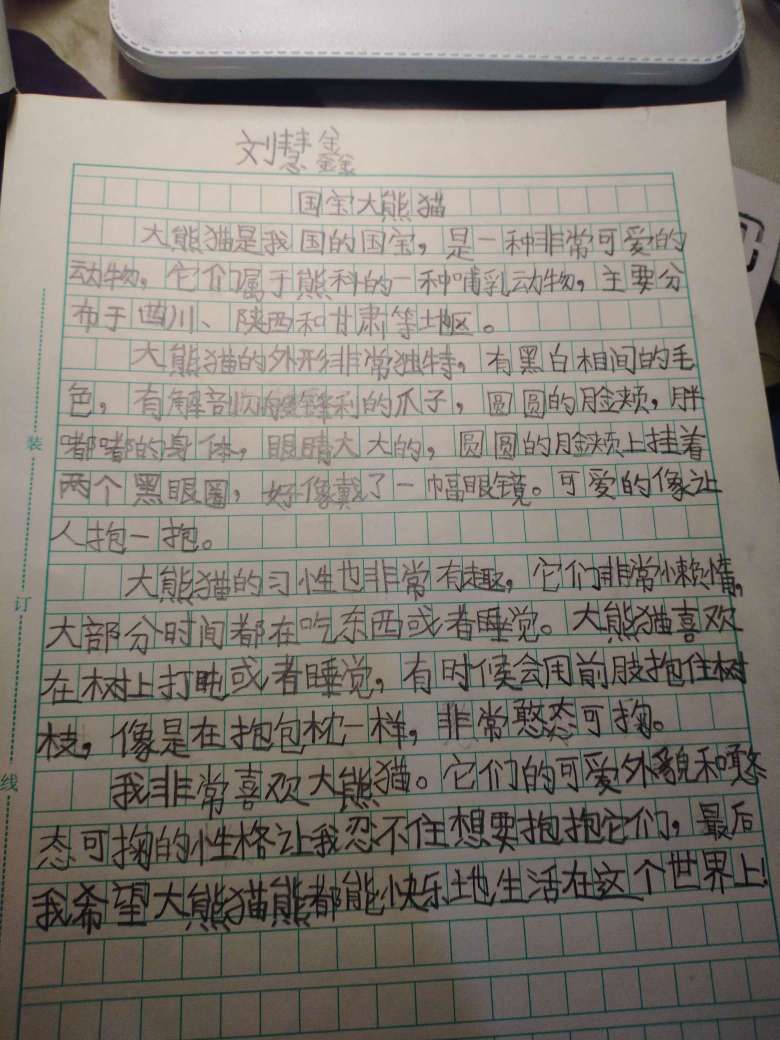 刘慧鑫
国宝大熊猫
大熊猫是我国的国宝，是一种非常可爱的
动物，它们属于熊科的一种哺乳动物，主要分
布于四川、陕西和甘肃等地区。
大熊猫的外形非常独特，有黑白相间的毛
色，有解剖刀般锋利的爪子，圆圆的脸颊，胖
嘟嘟的身体，眼睛大大的，圆圆的脸颊上挂着
两个黑眼圈，好像戴了一幅眼镜。可爱的像让
人抱一抱。
大熊猫的习性也非常有趣，它们非常懒惰，
大部分时间都在吃东西或者睡觉。大熊猫喜欢
在树上打盹或者睡觉，有时候会用前肢抱住树
枝，像是在抱包枕一样，非常憨态可掬。
我非常喜欢大熊猫。它们的可爱外貌和憨
态可掬的性格让我忍不住想要抱抱它们，最后
我希望大熊猫熊都能快乐地生活在这个世界上！
装
订
线